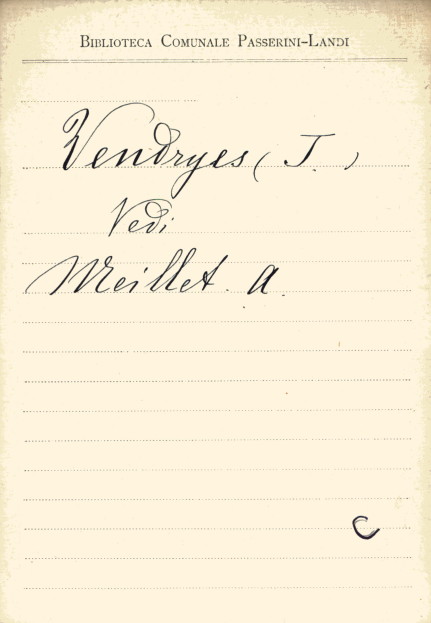 BIBLIOTECA COMUNALE PASSERINI-LANDI
Vendryes (J.)
Vedi
Meillet. A.
C